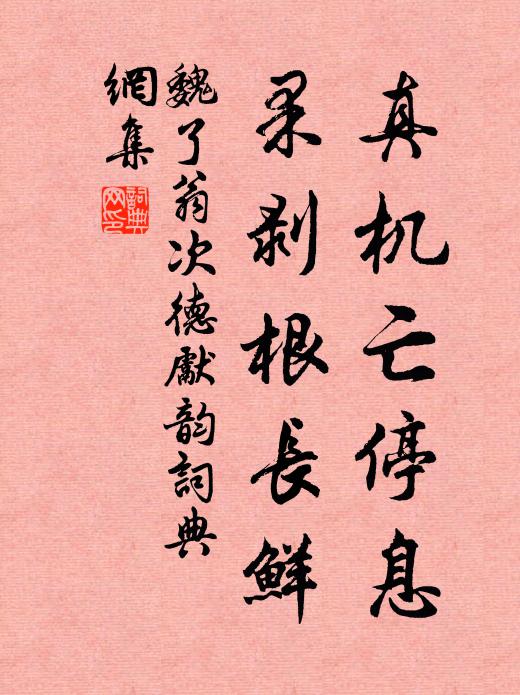 真机亡停息
果剥根長鮮
魏了翁次德獻韵詞典
網集
詞典网印